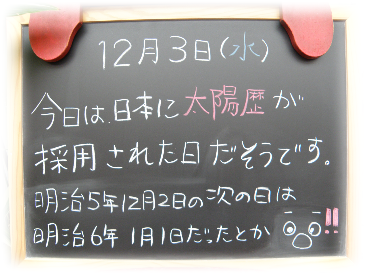 12月3日(水)
今日は、日本に太陽歴が
採用された日だそうです。
明治5年12月2日の次の日は
明治6年1月1日だったとか!!